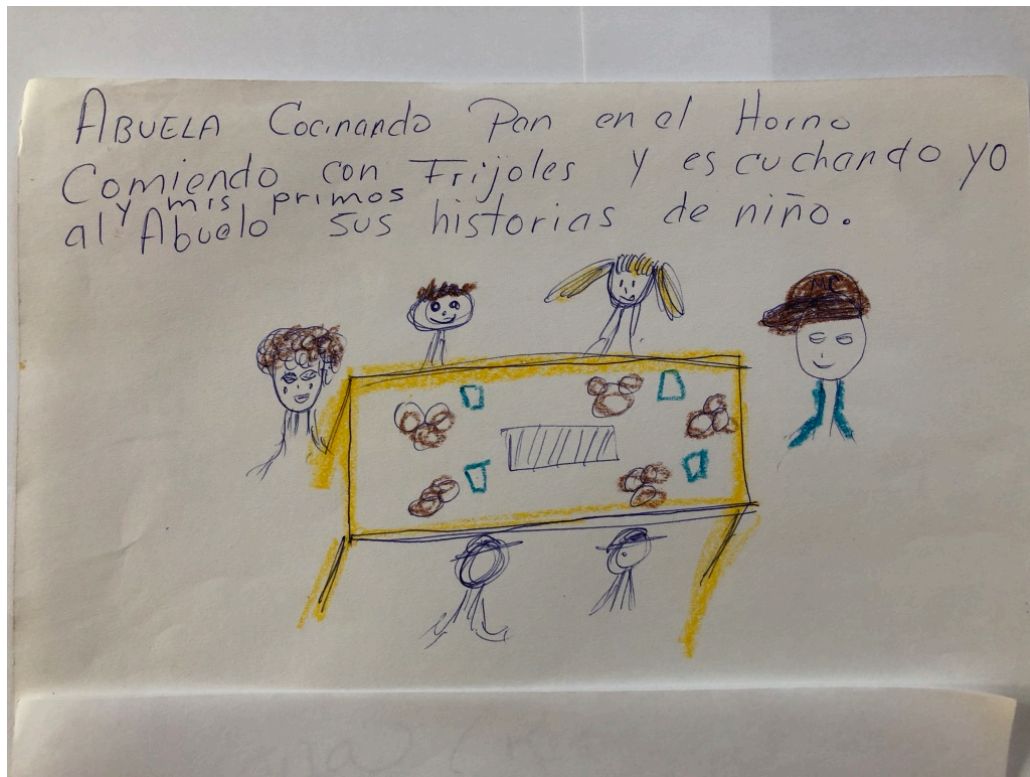 ABUELA Cocinando Pan en el Horno
Comiendo con Frijoles y escuchando yo
y mis primos
al Abuelo sus historias de niño.
MC